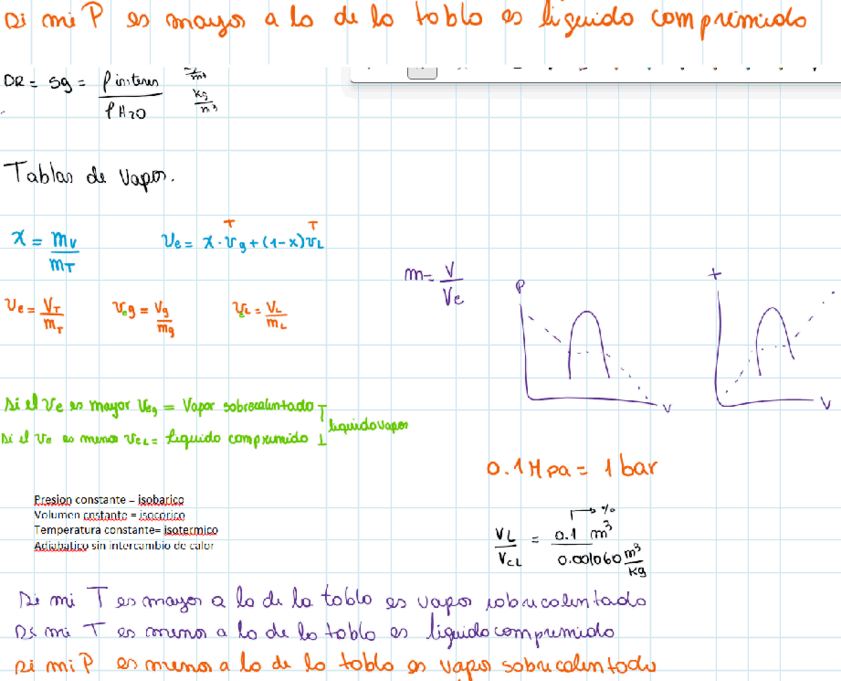 Si mi P es mayor a lo de la tabla es liquido comprimido
DR = Sg = ρ interes / ρ H2O
kg/m³
Tablas de Vapor.
x = mv / mT
Ve = x · Vg + (1-x) VL
T T
m = V / Ve
Ve = VT / mT
Veg = Vg / mg
VeL = VL / mL
P
V
T
V
Si el Ve es mayor Veg = Vapor sobrecalentado
Si el Ve es menor VeL = liquido comprimido
liquido vapor
0.1 Mpa = 1 bar
Presion constante = isobarico
Volumen cnstante = isocorico
Temperatura constante= isotermico
Adiabatico sin intercambio de calor
%
VL / VeL = 0.1 m³ / 0.001060 m³/kg
Si mi T es mayor a lo de la tabla es vapor sobrecalentado
Si mi T es menor a lo de la tabla es liquido comprimido
Si mi P es menor a lo de la tabla es vapor sobrecalentado